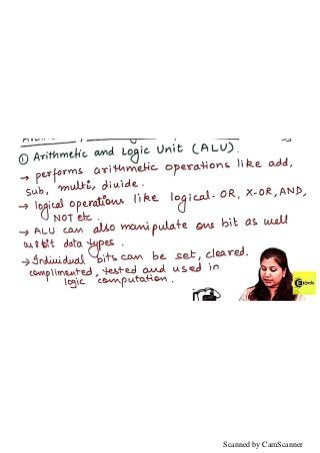 ① Arithmetic and Logic Unit (ALU).
→ performs arithmetic operations like add,
sub, multi, divide.
→ logical operations like logical-OR, X-OR, AND,
NOT etc.
→ ALU can also manipulate one bit as well
as 8 bit data types.
→ Individual bits can be set, cleared.
complimented, tested and used in
logic computation.
Scanned by CamScanner